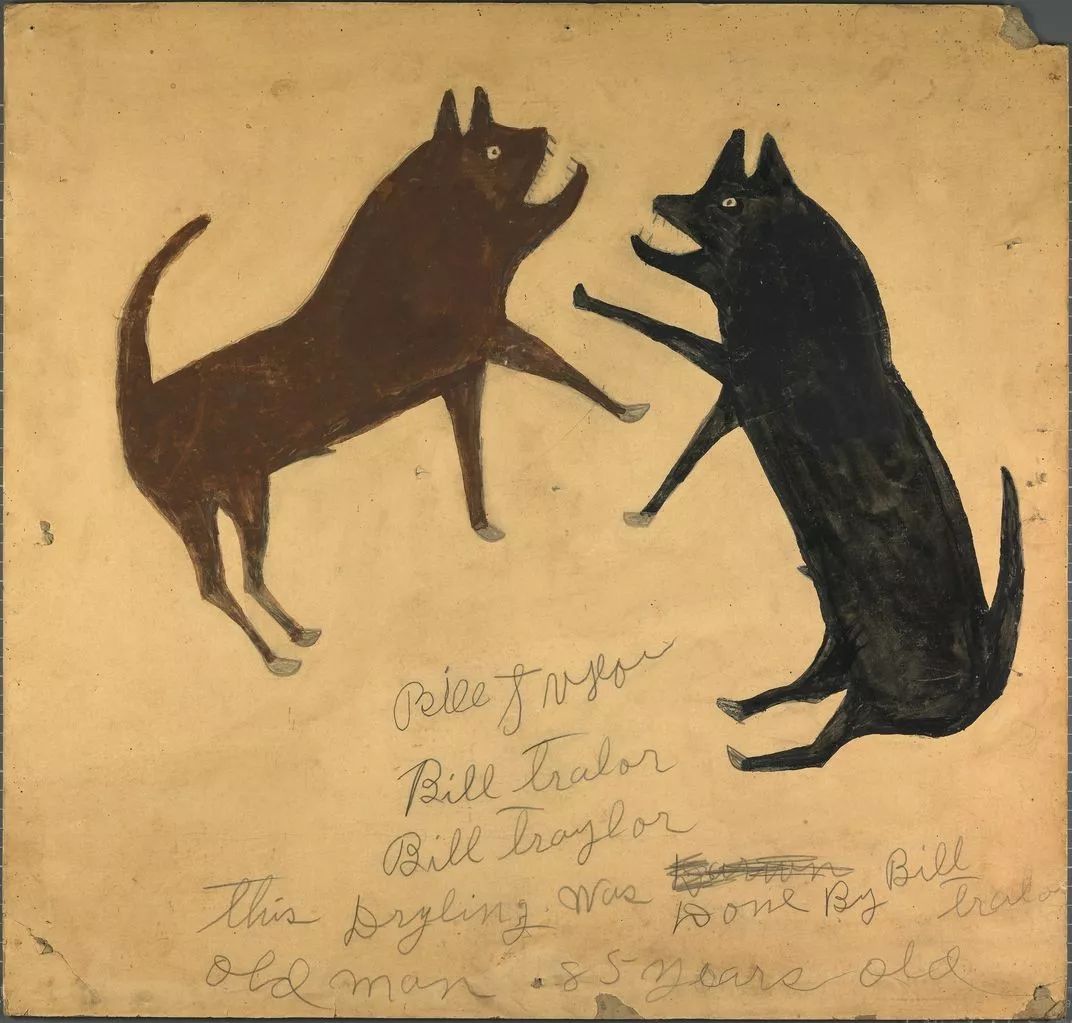 Bill
Bill tralor
Bill traylor
this Dryling was Done By Bill tralor
old man 85 years old